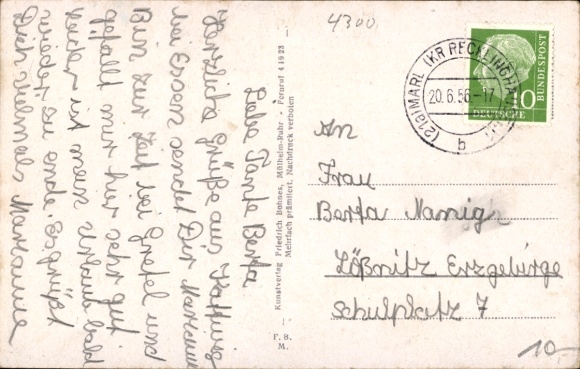 4300
Liebe Tante Berta
Herzliche Grüße aus Kattwig
bei Essen sendet Dir Marianne
Bin zur Zeit bei Gretel und
gefällt mir hier sehr gut
leider ist mein Urlaub bald
wieder zu ende. Es grüßt
Dich vielmals Marianne
Kunstverlag Friedrich Bohnes, Mülheim-Ruhr · Fernruf 41923
Mehrfach prämiiert. Nachdruck verboten
F. B.
M.
(21a) MARL (KR RECKLINGHA
20.6.56-17
b
10
DEUTSCHE
BUNDESPOST
An
Frau
Berta Namig
Lößnitz Erzgebirge
Schulplatz 7
10.-